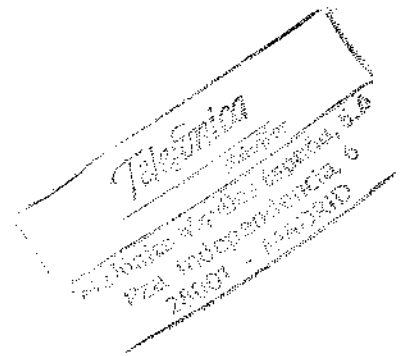 Telefónica
Móviles
Telefónica Móviles España, S.A.
Pza. Independencia, 6
28001 - MADRID